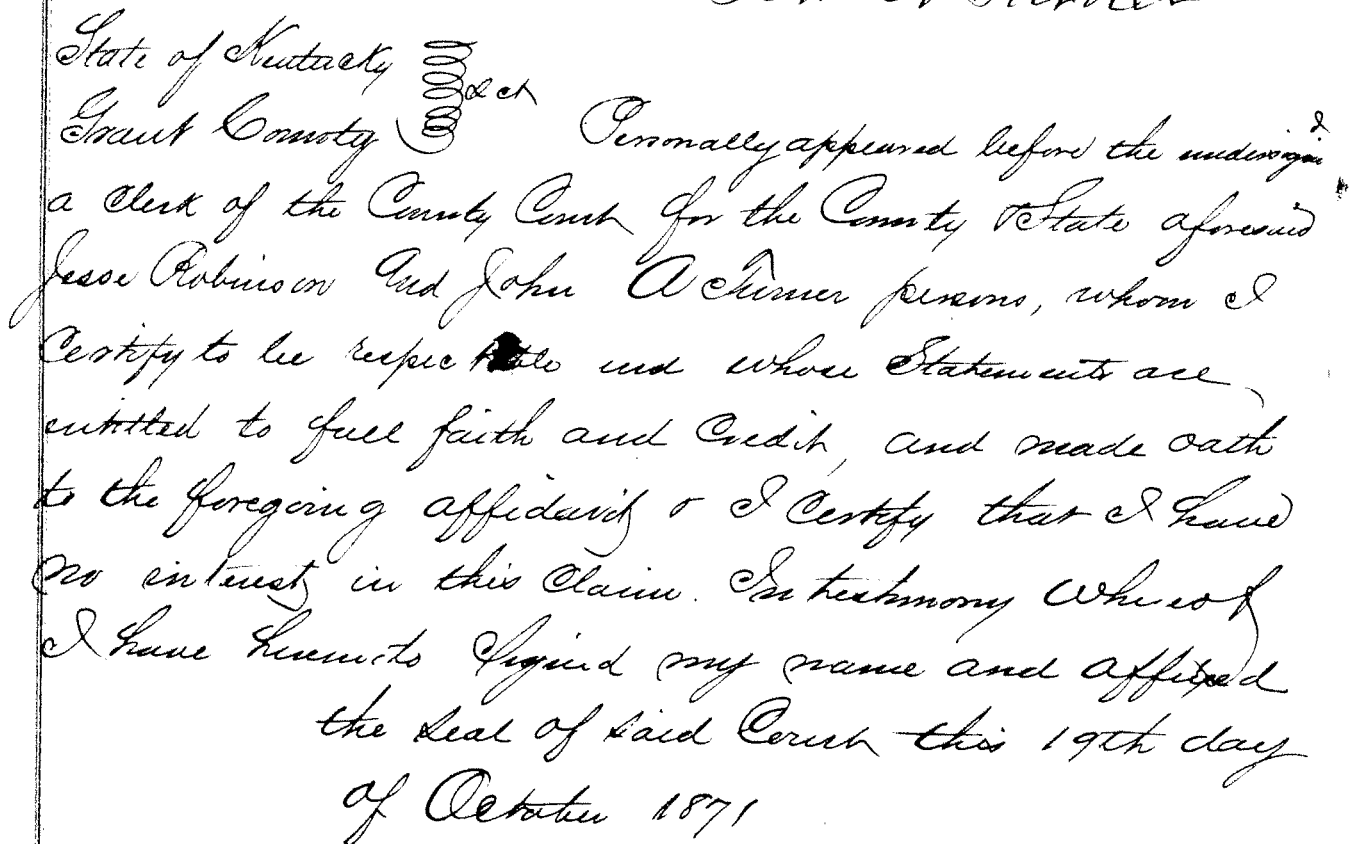 State of Kentucky
Grant County } Sct Personally appeared before the undersigned
a Clerk of the County Court for the County & State aforesaid
Jesse Robinson And John A Turner persons, whom I
Certify to be respectable and whose Statements are
entitled to full faith and Credit, and made oath
to the foregoing affidavit & I Certify that I have
no interest in this Claim. In testimony Whereof
I have hereunto Signed my name and affixed
the seal of said Court this 19th day
of October 1871